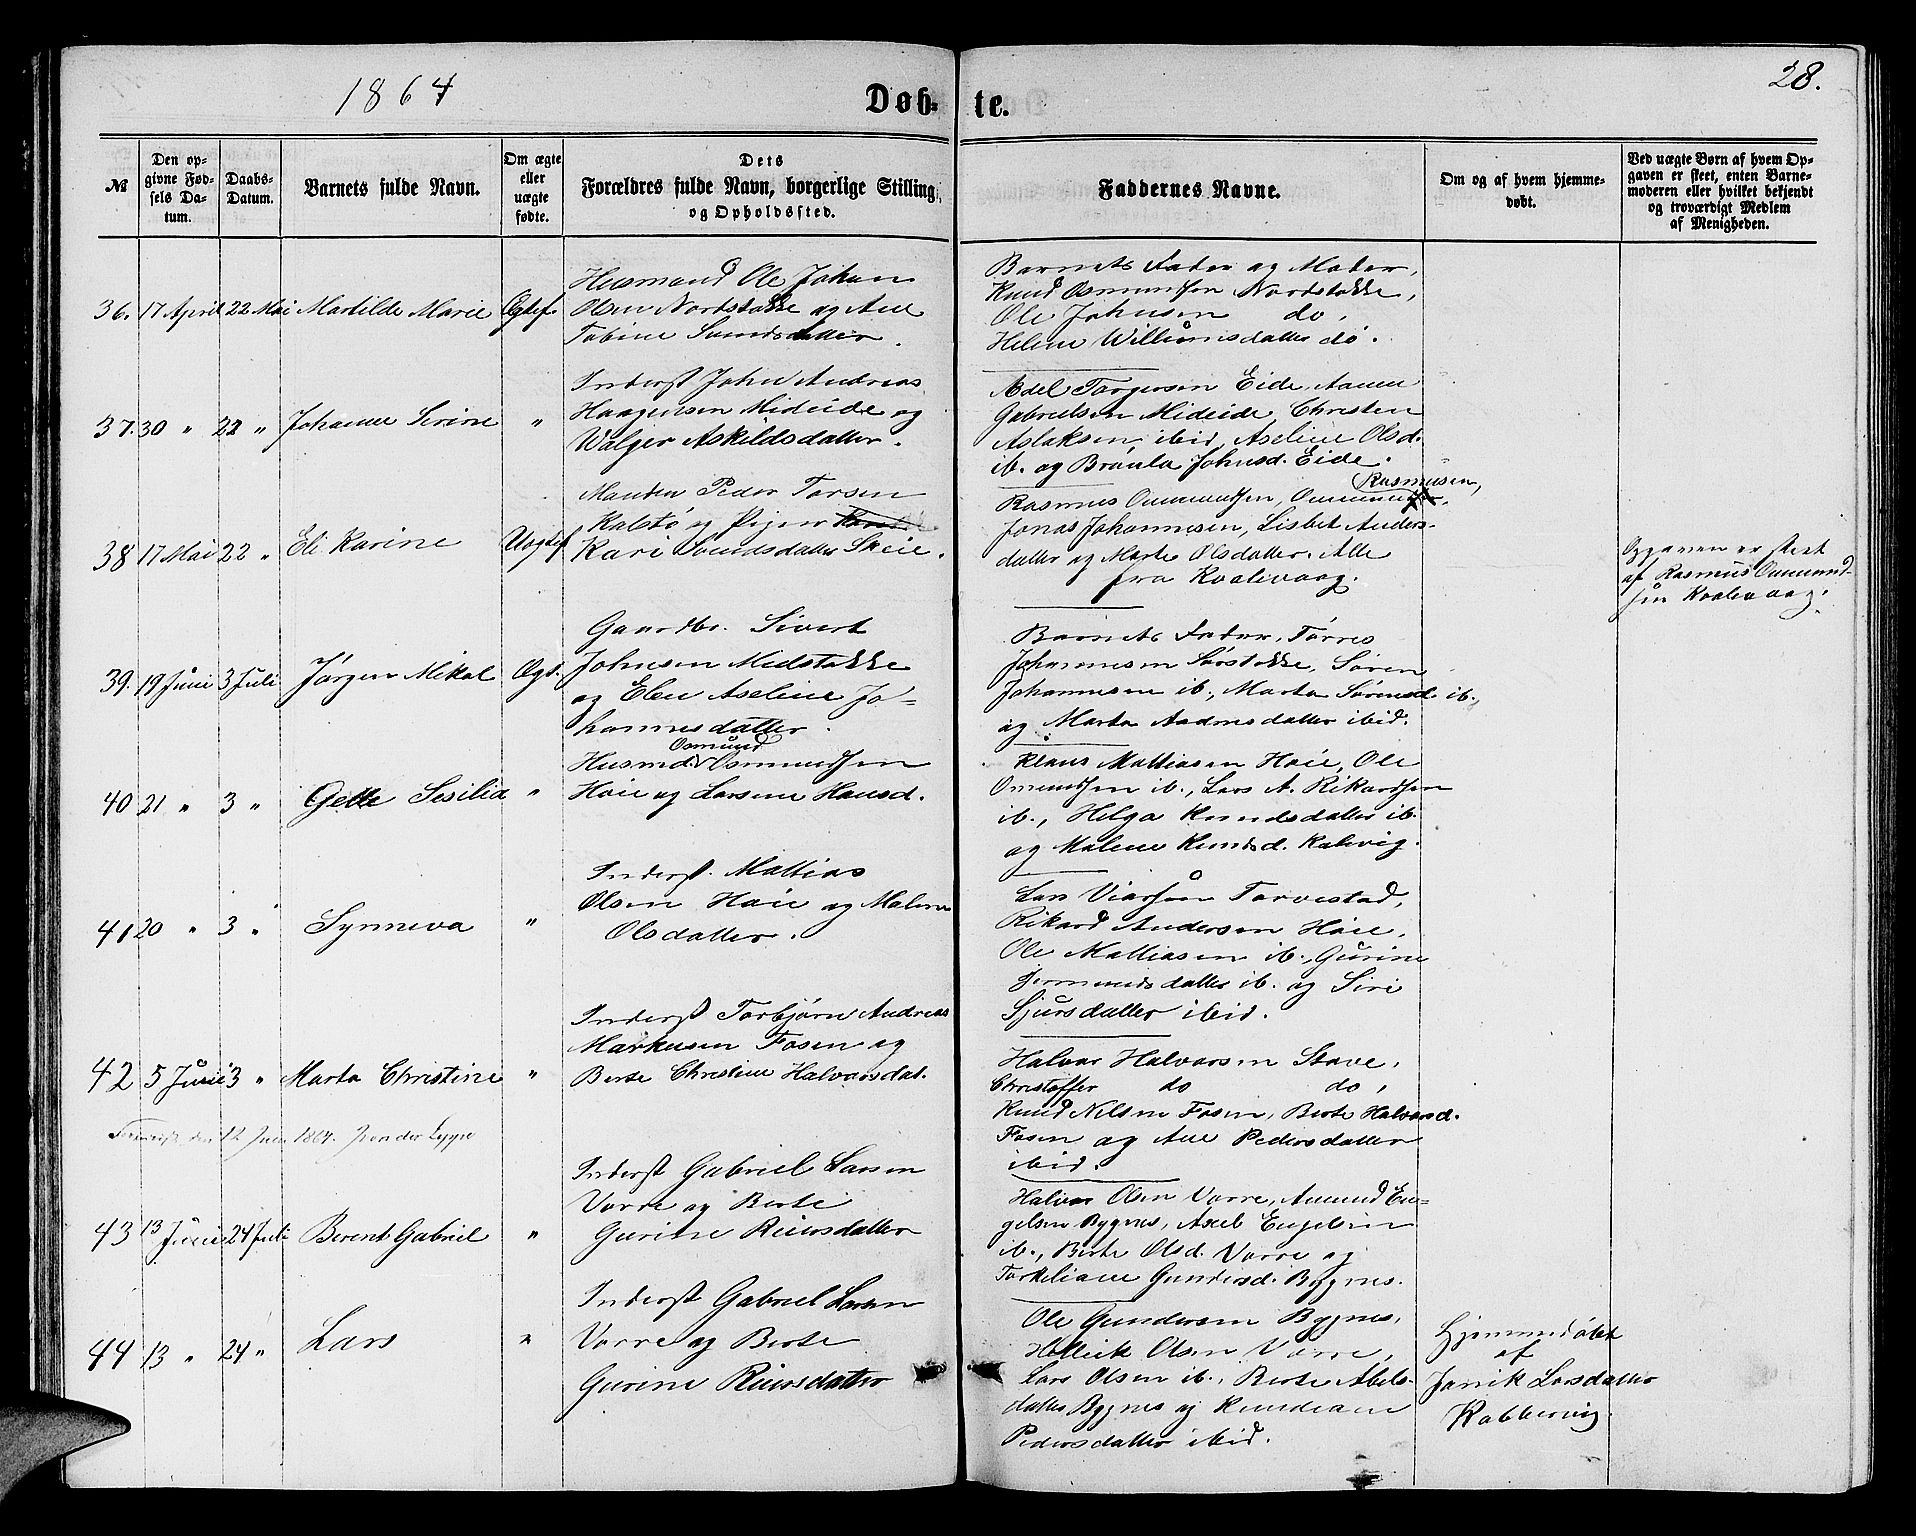 1864
Døb-
te.
28.
№
Den op-
givne Fød-
sels Da-
tum.
Daabs-
Datum.
Barnets fulde Navn.
Om ægte
eller
uægte
fødte.
Dets
Forældres fulde Navn, borgerlige Stilling,
og Opholdssted.
Faddernes Navne.
Om og af hvem hjemme-
døbt.
Ved uægte Børn af hvem Op-
gaven er skeet, enten Barne-
moderen eller hvilket bekjendt
og troværdigt Medlem
af Menigheden.
36. 17 April 22 Mai Martilde Marie Ægtef.
Husmand Ole Johan
Olsen Nordstokke og Ane
Tobine Svendsdatter.
Barnets Fader og Moder,
Knud Osmundsen Nordstokke,
Ole Johnsen do,
Helene Williamsdatter do.
37. 30 " 22 " Johanne Serine "
Inderst John Andreas
Haagensen Mideide og
Walger Askildsdatter.
Abel Torgersen Eide, Aanen
Gabrielsen Mideide, Christen
Aslaksen ibid, Aseline Olsd.
ib. og Bronla Johnsd. Eide.
38 17 Mai 22 " Eli Karine Uægtef
Manden Peder Torsen
Kalstø og Pigen
Kari Svendsdatter Skeie.
Rasmusen,
Rasmus Ommundsen, Ommund
Jonas Johannesen, Lisbet Anders-
datter og Marte Olsdatter. Alle
fra Kvalevaag.
Opgaven er skeet
af Rasmus Ommund-
sen Kvalevaag.
39. 19 Juni 3 Juli Jørgen Mikal Ægt.
Gaardbr. Sivert
Johnsen Midstokke
og Elen Aseline Jo-
hannesdatter.
Barnets Fader, Tørres
Johannesen Sørstokke, Søren
Johannesen ib., Marta Sørensd. ib.,
og Marta Andersdatter ibid.
40 21 " 3 " Gette Sesilia "
Osmund
Husmd. Osmundsen
Høie og Larsine Hansd.
Klaus Mattiasen Høie, Ole
Omundsen ib., Lars A. Rikardsen
ib., Helga Knudsdatter ib.
og Malene Knudsd. Kalevig.
41 20 " 3 " Synneva "
Inderst. Mattias
Olsen Høie og Malene
Olsdatter.
Lars Viarsen Torvestad,
Rikard Andersen Høie,
Ole Mattiasen ib., Gurine
Jermundsdatter ib. og Siri
Sjursdatter ibid.
42 5 Juni 3 " Marta Christine "
Inderst Torbjørn Andreas
Markusen Fosen og
Berte Christine Halvorsdat.
12 Juni 1864.
Halvor Halvorsen Stave,
Christoffer do do,
Knud Nilsen Fosen, Berte Halvorsd.
Fosen og Ane Pedersdatter
ibid.
43 13 Juni 24 Juli Berent Gabriel "
Inderst Gabriel Larsen
Vorre og Berte
Gurine Reiersdatter
Halvor Olsen Vorre, Amund En-
gelsen Bygnes, Axel Engelsen
ib., Berte Olsd. Vorre og
Torkeliane Gundersd. Bygnes.
44 13 " 24 " Lars "
Inderst Gabriel Larsen
Vorre og Berte
Gurine Reiersdatter
Ole Gundersen Bygnes,
Hellik Olsen Vorre,
Lars Olsen ib., Berte Abels-
datter Bygnes og Knudiane
Pedersdatter ibid.
Hjemmedøbt
af
Janik Larsdatter
Kobbervig